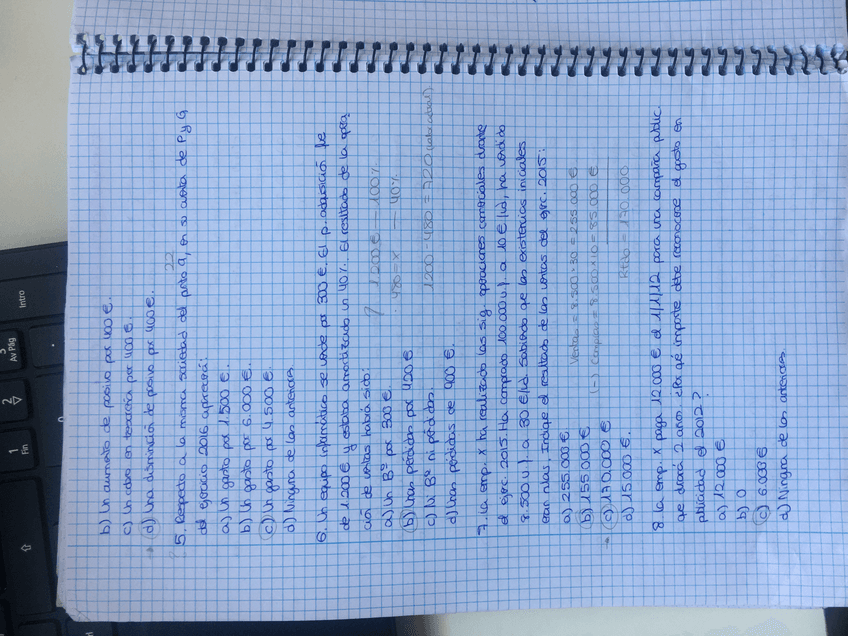 b) Un aumento de pasivo por 400 €.
c) Un cobro en tesorería por 400 €.
→ d) Una disminución de pasivo por 400 €.
22
5. Respecto a la misma sociedad del pnto 9, en su cuenta de P y G
del ejercicio 2016 aparecerá:
a) Un gasto por 1.500 €.
b) Un gasto por 6.000 €.
c) Un gasto por 4.500 €.
d) Ninguna de las anteriores.
6. Un equipo informático se vende por 300 €. El p. adquisición fue
de 1.200 € y estaba amortizado un 40%. El resultado de la opera
ción de ventas habrá sido:
a) Un Bº por 300 €.
b) Unas pérdidas por 420 €
c) Ni Bº ni pérdidas.
d) Unas pérdidas de 900 €.
? 1.200 € — 100%
480 = x — 40%
1200 - 480 = 720 (valor actual)
7. La emp. X ha realizado las sig. operaciones comerciales durante
el ejerc. 2015. Ha comprado 100.000 u/. a 10 €/ud, ha vendido
8.500 u/. a 30 €/ud. Sabiendo que las existencias iniciales
eran nulas. Indique el resultado de las ventas del ejerc. 2015:
a) 255.000 €
b) 155.000 €
→ c) 170.000 €
d) 15.000 €.
Ventas = 8.500 · 30 = 255.000 €
(-) Compras = 8.500 · 10 = 85.000 €
Rtdo = 170.000
8. La emp. X paga 12.000 € el 1/1/12 para una campaña public.
que durará 2 años. ¿Por qué importe debe reconocerse el gasto en
publicidad el 2012?
a) 12.000 €
b) 0
c) 6.000 €
d) Ninguna de las anteriores.
Intro
3
Av Pág
2
1
Fin